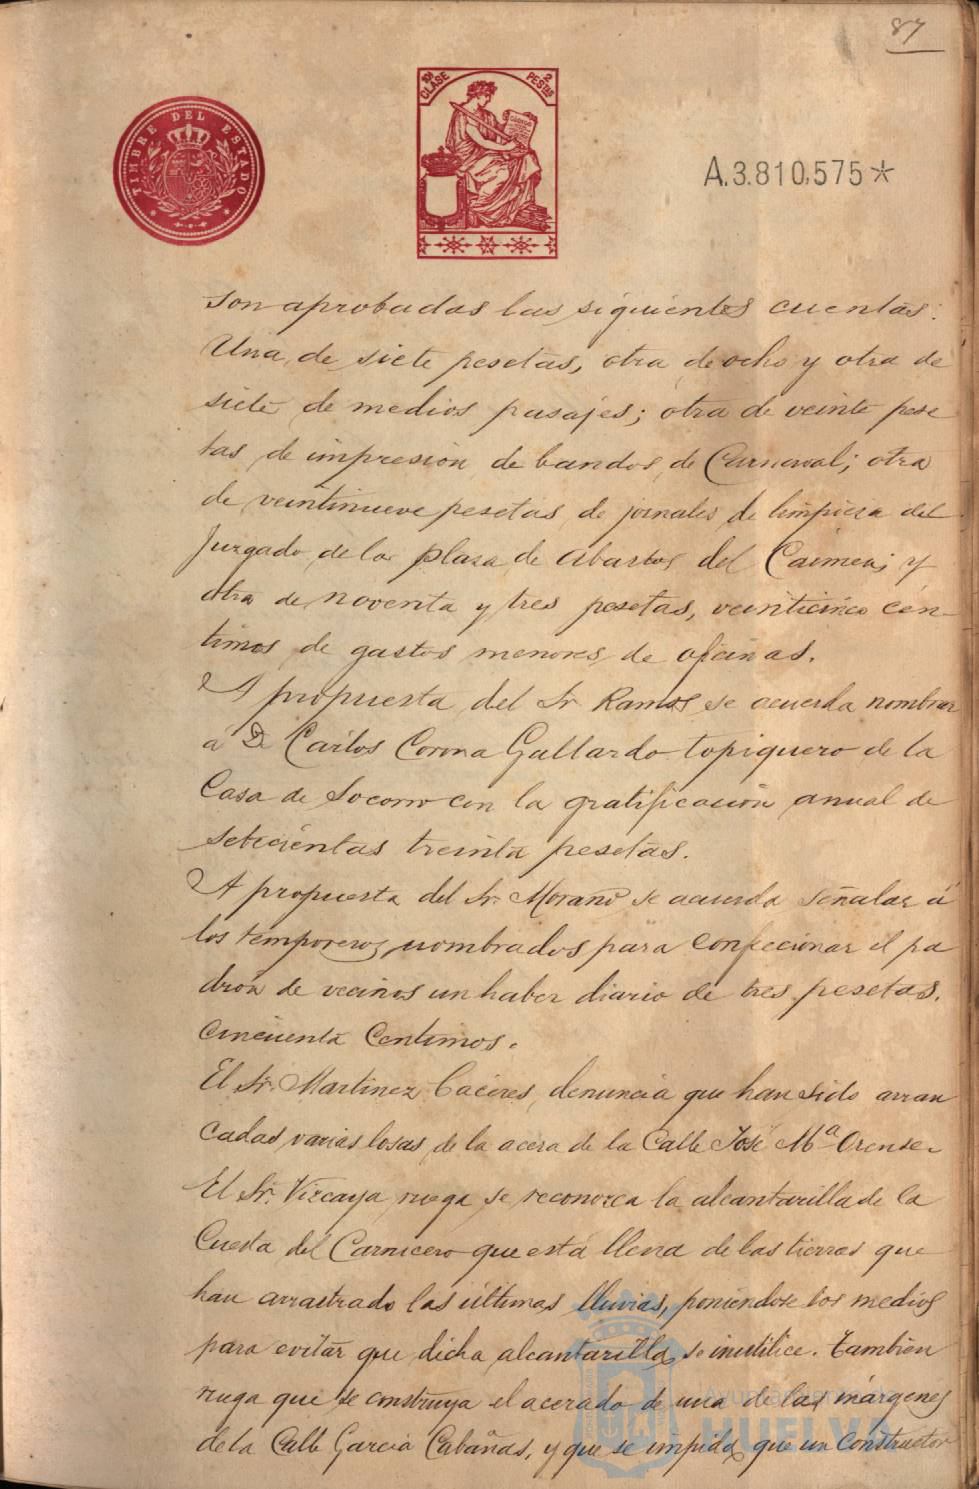 87
TIMBRE DEL ESTADO
10ª CLASE
2 PESETAS
A.3.810,575*
son aprobadas las siguientes cuentas:
Una, de siete pesetas, otra de ocho y otra de
siete de medios pasajes; otra de veinte pese
tas de impresion de bandos de Carnaval; otra
de veintinueve pesetas de jornales de limpieza del
Juzgado de la plaza de Abastos del Carmen; y
otra de noventa y tres pesetas, veinticinco cén-
timos de gastos menores de oficinas.
A propuesta del Sr. Ramos se acuerda nombrar
a Dn Carlos Corona Gallardo topiquero de la
Casa de Socorro con la gratificacion anual de
setecientas treinta pesetas.
A propuesta del Sr. Moraño se acuerda señalar á
los temporeros nombrados para confeccionar el pa
dron de vecinos un haber diario de tres pesetas,
cincuenta centimos.
El Sr. Martinez Caceres, denuncia que han sido arran
cadas varias losas de la acera de la Calle José Mª Orense.
El Sr. Vizcaya ruega se reconozca la alcantarilla de la
Cuesta del Carnicero que está llena de las tierras que
han arrastrado las últimas lluvias, poniendose los medios
para evitar que dicha alcantarilla se inutilice. Tambien
ruega que se construya el acerado de una de las márgenes
de la Calle Garcia Cabañas, y que se impida que un constructor
Ayuntamiento de
HUELVA